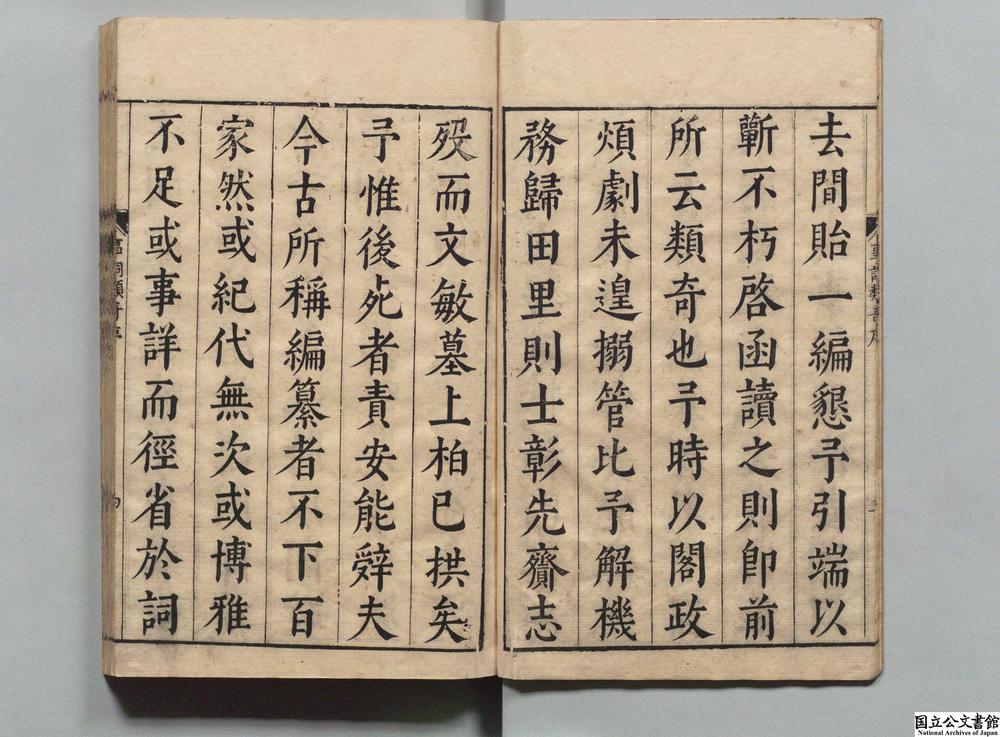 去間貽一編懇予引端以
蘄不朽啓函讀之則卽前
所云類奇也予時以閣政
煩劇未遑搦管比予解機
務歸田里則士彰先齎志
歿而文敏墓上柏已拱矣
予惟後死者責安能辤夫
今古所稱編纂者不下百
家然或紀代無次或博雅
不足或事詳而徑省於詞
事詞類奇序
国立公文書館
National Archives of Japan